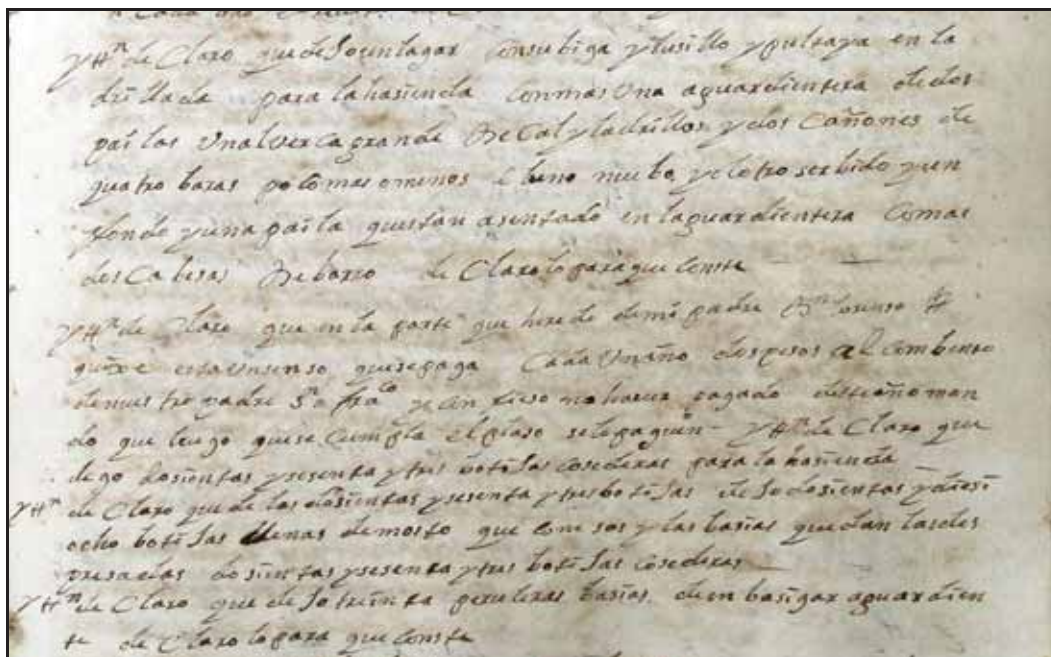 Yttn de Claro que deJo un lagar con su biga y tusillo y puntaya en la
drillada para la hasienda con mas Una aguardientera de dos
pailas Una lverca grande De Cal y ladrillos y dos Cañones de
quatro baras poco mas o menos el uno nuebo y el otro serbido y un
fondo y una paila questan asentado en la guardientera Comas
dos Cabesas De barro de Clarolo para que Conste
Yttn de Claro que en la parte que herede de mi padre Dn Lorenso
esta Un senso que se paga Cada Un año dos pesos al Combento
de nuestro padre Sn fraco y Confieso no haver pagado este año man
do que luego que se Cumpla el plaso se le paguen Yttn de Claro que
dejo dosientas y sesenta y tres botiJas cosederas para la hasienda
Yttn de Claro que de las dosientas y sesenta y tres botiJas deJo dosientas y diesi
ocho botiJas llenas de mosto que con sos y las basias quedan las des
presadas dosientas y sesenta y tres botiJas cosederas
Yttn de Claro que deJo treinta peruleras basias de enbasigar aguardien
te de Claro lo para que Conste